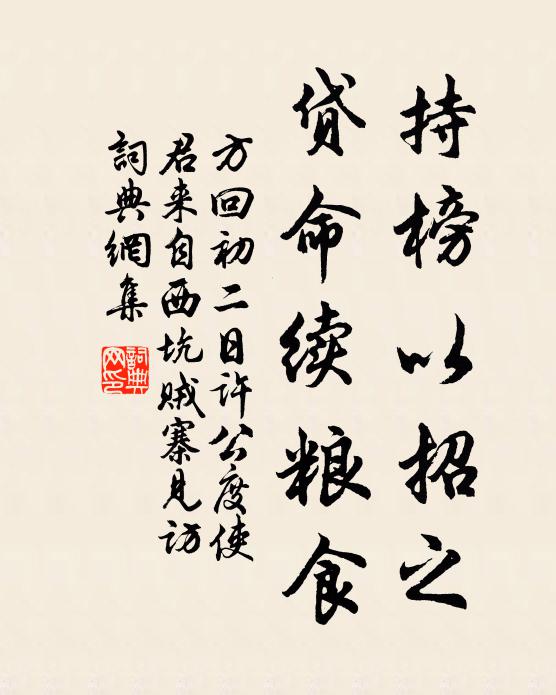 持榜以招之
贷命续粮食
方回初二日许公度使
君来自西坑贼寨见访
詞典網集
詞典网印